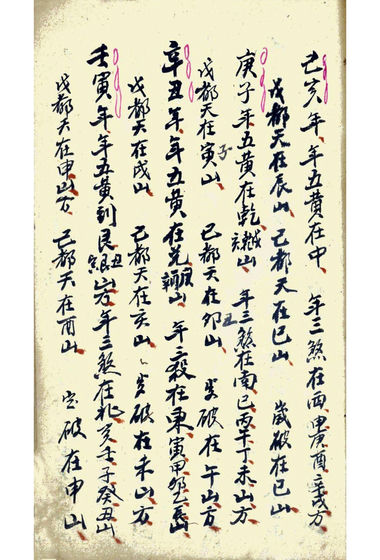 己亥年、年五黄在中 年三煞在西申庚酉辛戌方
戊都天在辰山 己都天在巳山 歲破在巳山
庚子年五黄在乾山 年三煞在南巳丙午丁未山方
戊都天在寅山 己都天在卯山 岁破在午山方
辛丑年年五黄在兑山 年三殺在東寅甲卯乙辰
戊都天在戌山 己都天在亥山、岁破在未山方
壬寅年年五黄到艮山年三煞在北亥壬子癸丑山
戊都天在申山方 己都天在酉山 岁破在申山